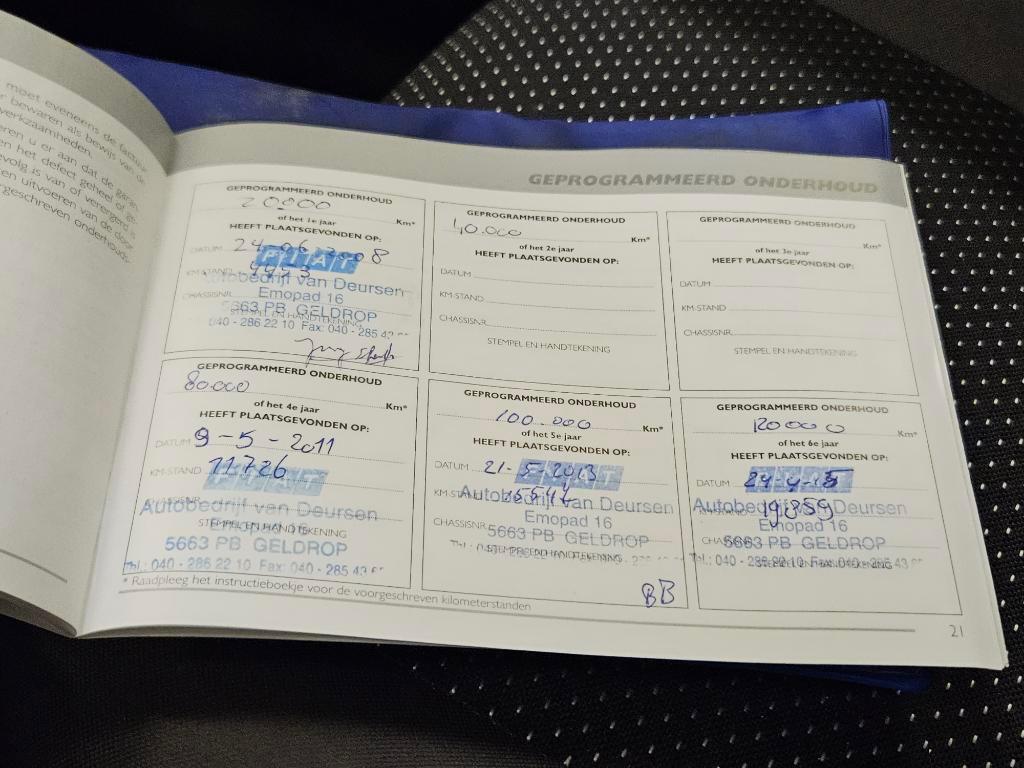 moet eveneens de factuur
bewaren als bewijs van de
werkzaamheden.
u er aan dat de garan
en het defect geheel of ge
evolg is van of verergerd is
en uitvoeren van de door
rgeschreven onderhouds-
GEPROGRAMMEERD ONDERHOUD
GEPROGRAMMEERD ONDERHOUD
20000 Km*
of het 1e jaar
HEEFT PLAATSGEVONDEN OP:
DATUM 24 06 2008
FIAT
KM-STAND
Autobedrijf van Deursen
CHASSISNR.
Emopad 16
5663 PB GELDROP
STEMPEL EN HANDTEKENING
040 - 286 22 10 Fax: 040 - 285 43
GEPROGRAMMEERD ONDERHOUD
40.000 Km*
of het 2e jaar
HEEFT PLAATSGEVONDEN OP:
DATUM
KM-STAND
CHASSISNR.
STEMPEL EN HANDTEKENING
GEPROGRAMMEERD ONDERHOUD
Km*
of het 3e jaar
HEEFT PLAATSGEVONDEN OP:
DATUM
KM-STAND
CHASSISNR.
STEMPEL EN HANDTEKENING
GEPROGRAMMEERD ONDERHOUD
80.000 Km*
of het 4e jaar
HEEFT PLAATSGEVONDEN OP:
DATUM 9-5-2011
KM-STAND 11726
FIAT
CHASSISNR.
Autobedrijf van Deursen
Emopad 16
STEMPEL EN HANDTEKENING
5663 PB GELDROP
Tel.: 040 - 286 22 10 Fax: 040 - 285 43
GEPROGRAMMEERD ONDERHOUD
100.000 Km*
of het 5e jaar
HEEFT PLAATSGEVONDEN OP:
DATUM 21-5-2013
KM-STAND
Autobedrijf van Deursen
Emopad 16
CHASSISNR.
5663 PB GELDROP
STEMPEL EN HANDTEKENING
BB
GEPROGRAMMEERD ONDERHOUD
120000 Km*
of het 6e jaar
HEEFT PLAATSGEVONDEN OP:
DATUM 24-4-15
KM-STAND 19859
Autobedrijf van Deursen
Emopad 16
CHASSISNR.
5663 PB GELDROP
STEMPEL EN HANDTEKENING
Tel.: 040 - 286 22 10 Fax: 040 - 285 43
* Raadpleeg het instructieboekje voor de voorgeschreven kilometerstanden
21